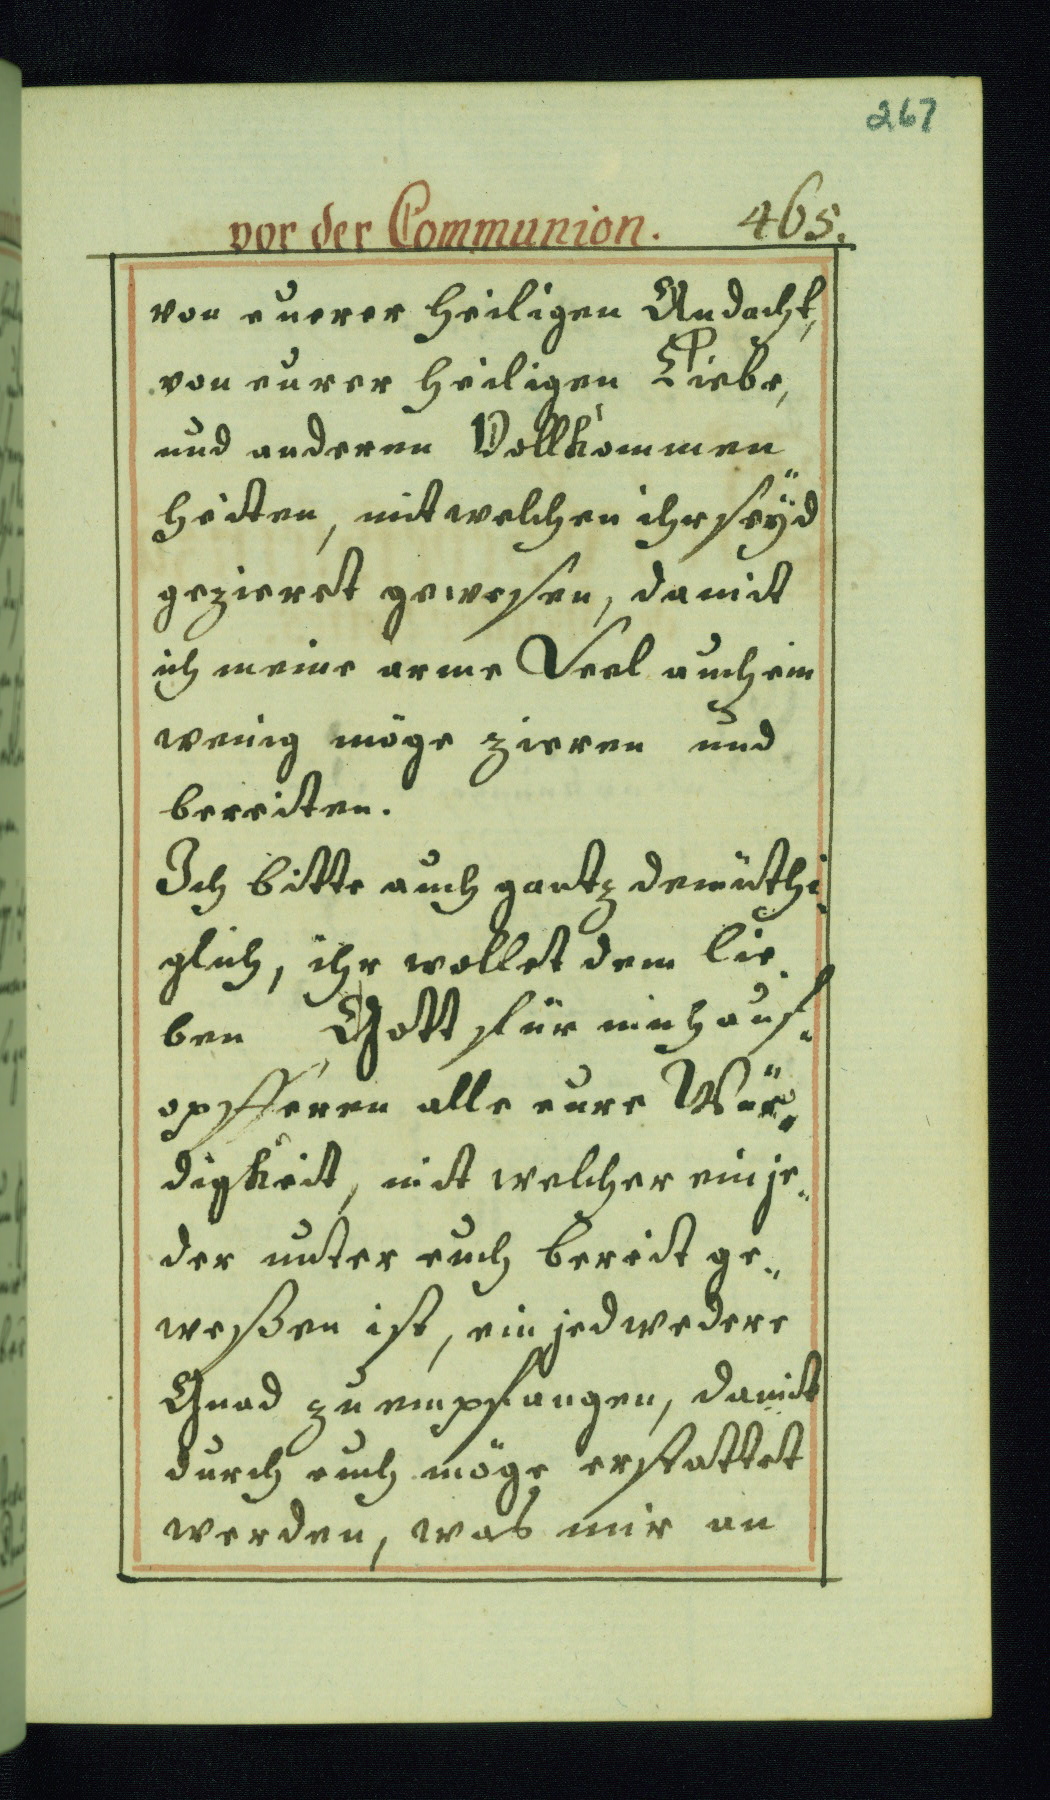 267
vor der Communion. 465.
von euerer heiligen Andacht,
von eurer heiligen Liebe,
und anderen Vollkommen
heiten, mit welchen ihr seÿd
gezieret gewesen, damit
ich meine arme Seel auch ein
wenig möge zieren und
bereiten.
Ich bitte auch gantz demüthi„
glich, ihr wollet dem lie„
ben Gott für mich auf„
opfferen alle eure Wür„
digkeit, mit welcher ein je„
der unter euch bereit ge„
weßen ist, ein jedwedere
Gnad zu empfangen, damit
durch euch möge erstattet
werden, was mir an